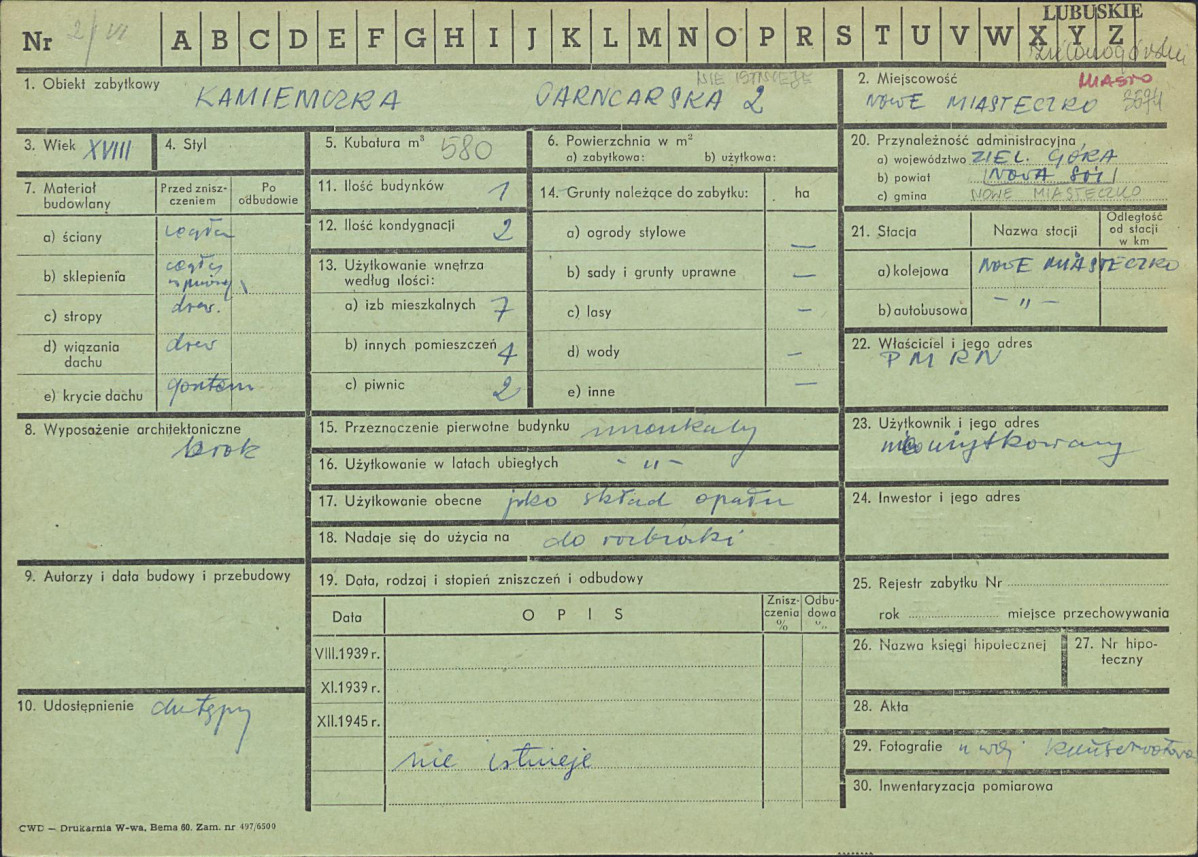 LUBUSKIE
Nr 2/VI A B C D E F G H I J K L M N O P R S T U V W X Y Z
NIE ISTNIEJE
1. Obiekt zabytkowy
KAMIENICZKA GARNCARSKA 2
2. Miejscowość MIASTO
NOWE MIASTECZKO
3. Wiek XVIII
4. Styl
5. Kubatura m³ 580
6. Powierzchnia w m²
a) zabytkowa: b) użytkowa:
7. Materiał budowlany
Przed zniszczeniem
Po odbudowie
a) ściany cegła
b) sklepienia cegły
c) stropy drew.
d) wiązania dachu drew
e) krycie dachu gontem
8. Wyposażenie architektoniczne
brak
9. Autorzy i data budowy i przebudowy
10. Udostępnienie dostępny
11. Ilość budynków 1
12. Ilość kondygnacji 2
13. Użytkowanie wnętrza według ilości:
a) izb mieszkalnych 7
b) innych pomieszczeń 4
c) piwnic 2
14. Grunty należące do zabytku: ha
a) ogrody stylowe —
b) sady i grunty uprawne —
c) lasy —
d) wody —
e) inne —
15. Przeznaczenie pierwotne budynku mieszkalny
16. Użytkowanie w latach ubiegłych - " -
17. Użytkowanie obecne jako skład opału
18. Nadaje się do użycia na do rozbiórki
19. Data, rodzaj i stopień zniszczeń i odbudowy
Data
OPIS
Zniszczenia %
Odbudowa "
VIII.1939 r.
XI.1939 r.
XII.1945 r.
nie istnieje
20. Przynależność administracyjna
a) województwo ZIEL. GÓRA
b) powiat NOWA SÓL
c) gmina NOWE MIASTECZKO
21. Stacja
Nazwa stacji
Odległość od stacji w km
a) kolejowa NOWE MIASTECZKO
b) autobusowa - " -
22. Właściciel i jego adres
PMRN
23. Użytkownik i jego adres
nieużytkowany
24. Inwestor i jego adres
25. Rejestr zabytku Nr
rok miejsce przechowywania
26. Nazwa księgi hipotecznej
27. Nr hipoteczny
28. Akta
29. Fotografie u woj. konserwatora
30. Inwentaryzacja pomiarowa
CWD — Drukarnia W-wa, Bema 60. Zam. nr 497/6500